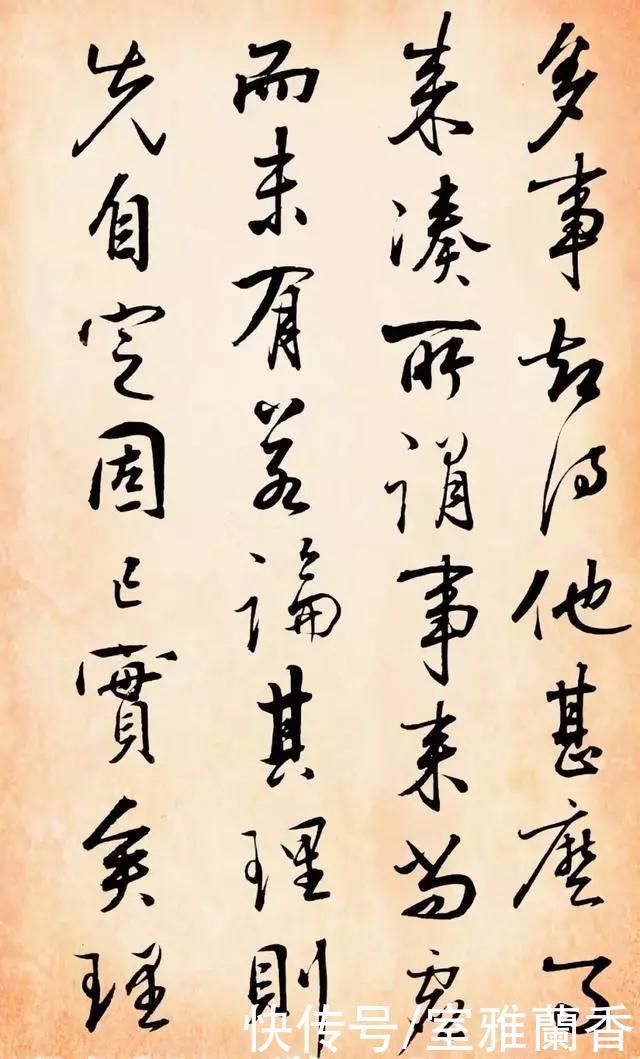 多事却得他甚麼
来湊所謂事来尚虚
而未有若論其理則
先自定固已實矣理
快传号/室雅蘭香